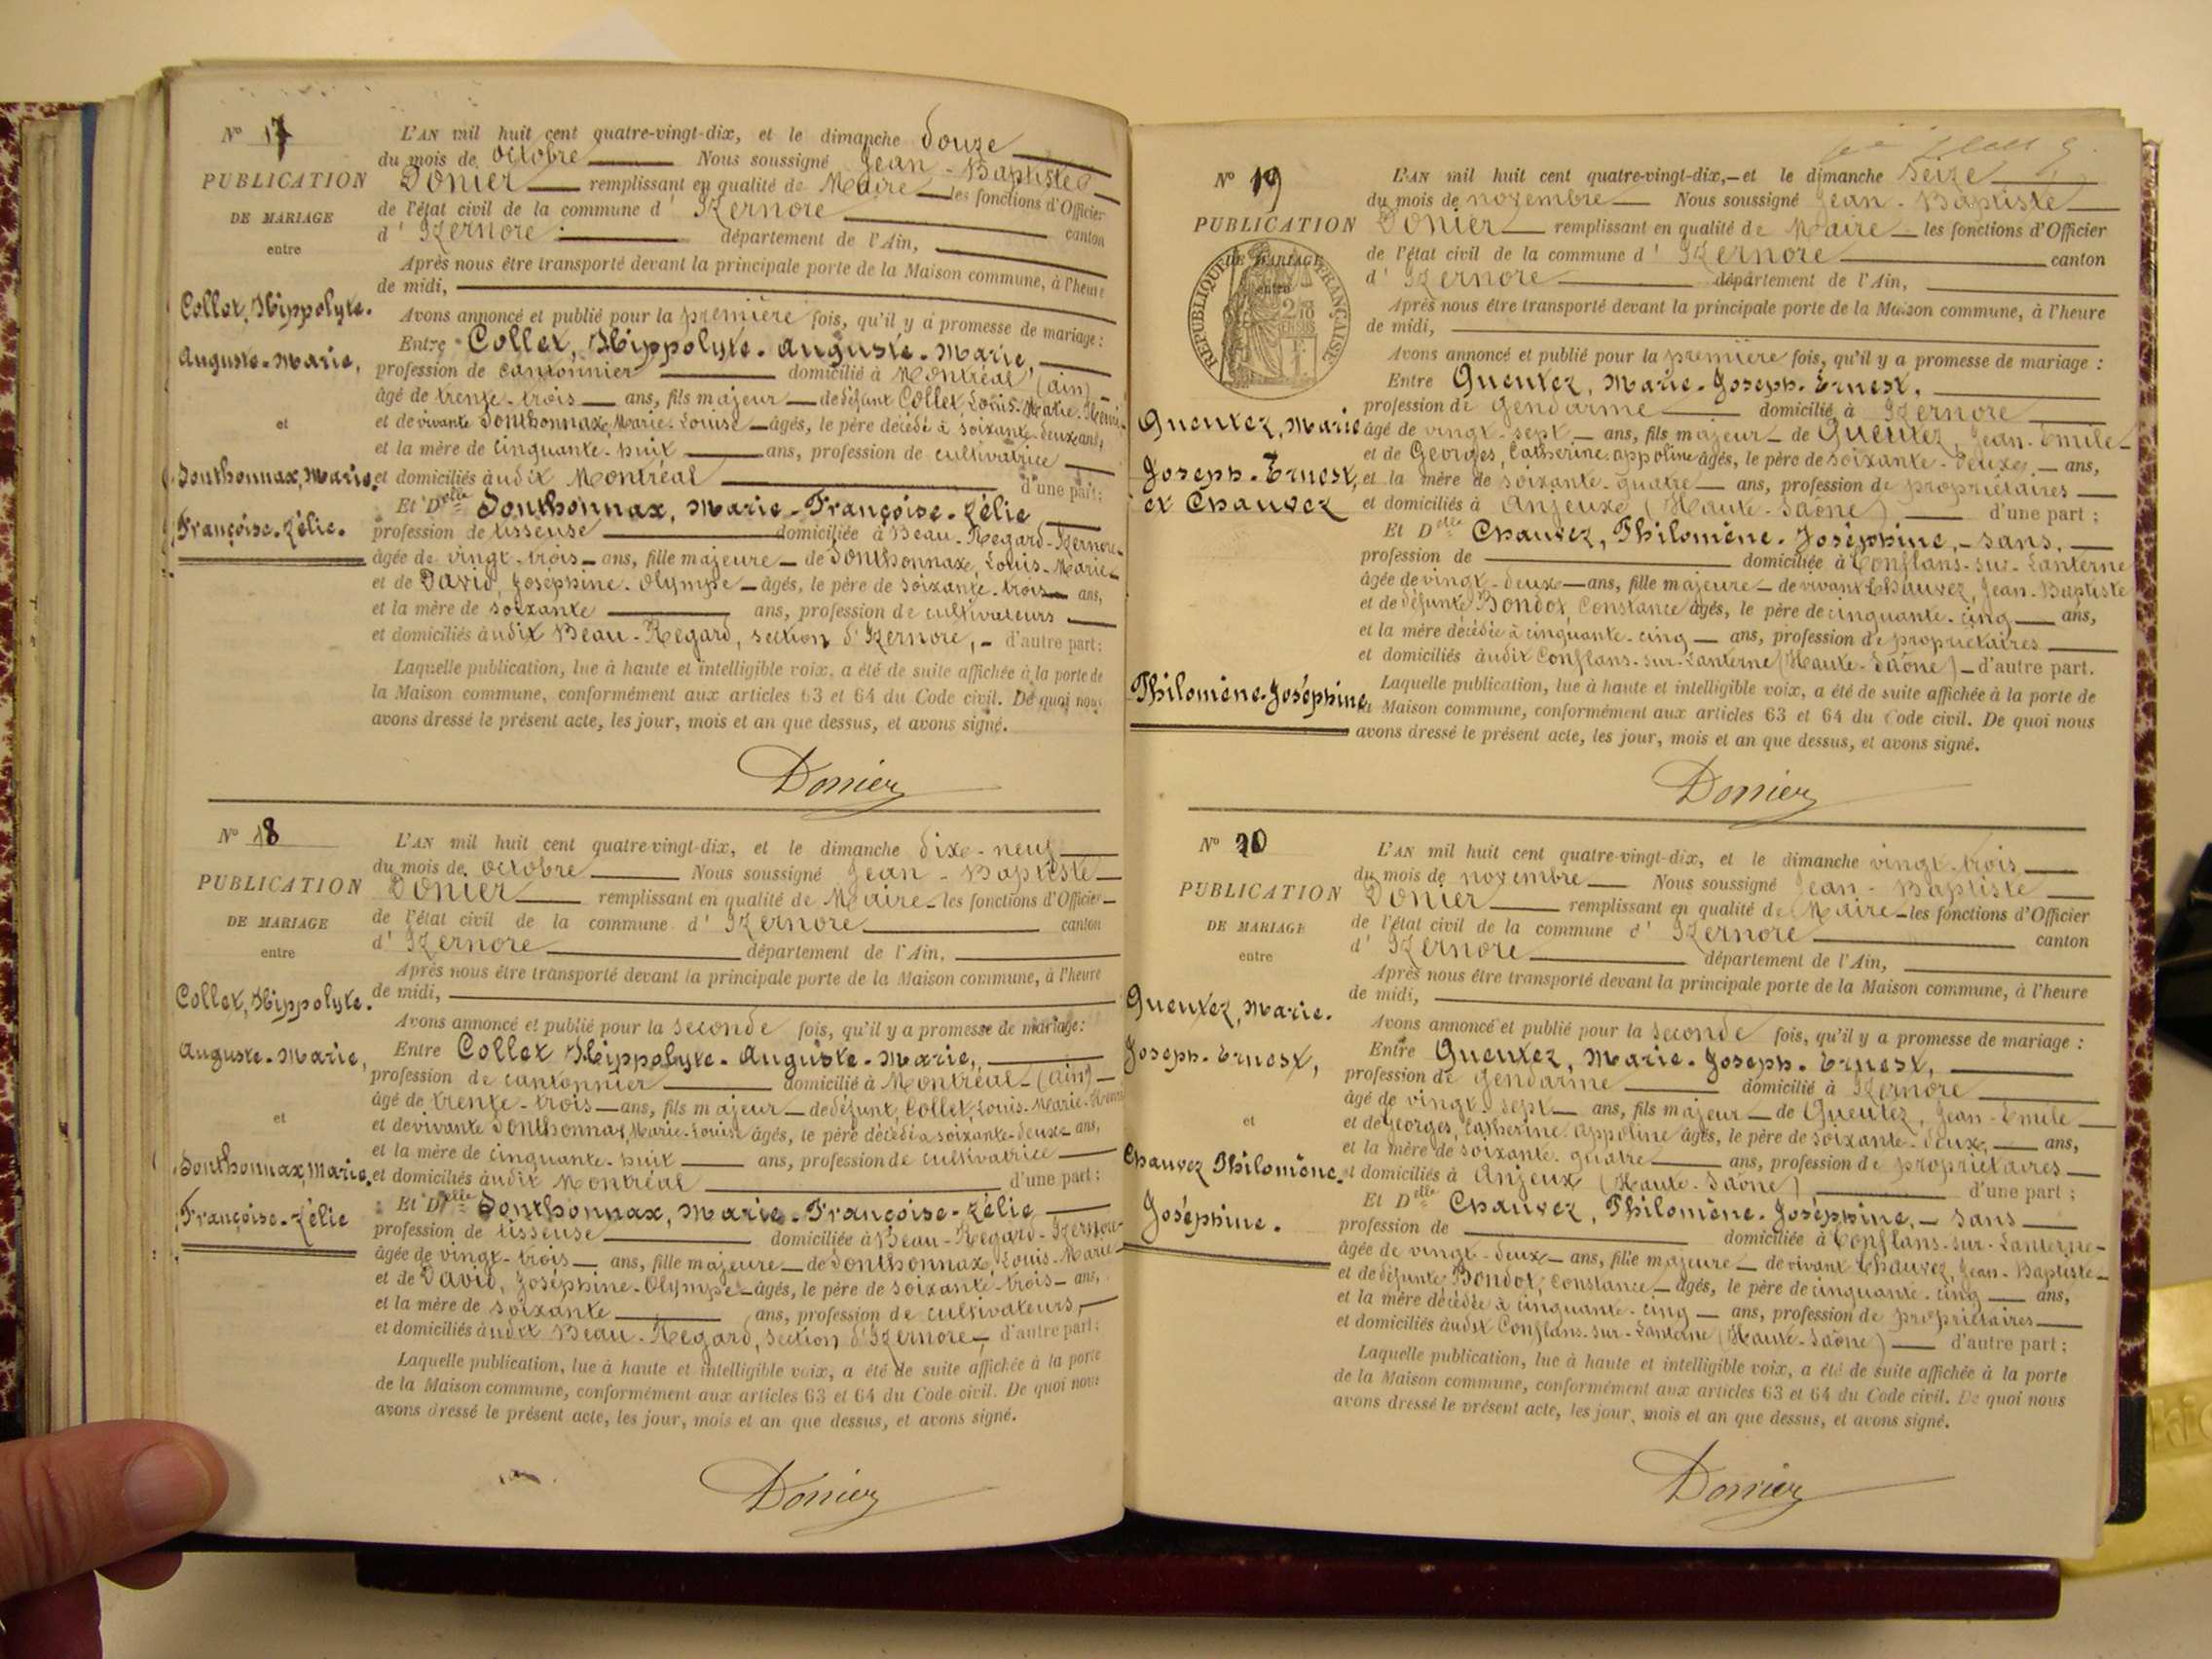 N° 17
PUBLICATION
DE MARIAGE
entre
Collet, Hippolyte-
Auguste-Marie,
et
Sonthonnax, Marie-
Françoise-Zélie.
L'AN mil huit cent quatre-vingt-dix, et le dimanche douze
du mois de octobre Nous soussigné Jean-Baptiste
Donier remplissant en qualité de Maire les fonctions d'Officier
de l'état civil de la commune d' Izernore canton
d' Izernore département de l'Ain,
Après nous être transporté devant la principale porte de la Maison commune, à l'heure
de midi,
Avons annoncé et publié pour la première fois, qu'il y a promesse de mariage :
Entre Collet, Hippolyte-Auguste-Marie,
profession de cantonnier domicilié à Montréal (Ain)
âgé de trente-trois ans, fils majeur de défunt Collet, Louis-Marie-
et de vivante Sonthonnax, Marie-Louise âgés, le père décédé à soixante-deux ans,
et la mère de cinquante-huit ans, profession de cultivatrice
et domiciliés audit Montréal d'une part;
Et Delle Sonthonnax, Marie-Françoise-Zélie
profession de tisseuse domiciliée à Beau-Regard-Izernore
âgée de vingt-trois ans, fille majeure de Sonthonnax, Louis-Marie
et de David, Joséphine-Olympe âgés, le père de soixante-trois ans,
et la mère de soixante ans, profession de cultivateurs
et domiciliés audit Beau-Regard, section d'Izernore, d'autre part;
Laquelle publication, lue à haute et intelligible voix, a été de suite affichée à la porte de
la Maison commune, conformément aux articles 63 et 64 du Code civil. De quoi nous
avons dressé le présent acte, les jour, mois et an que dessus, et avons signé.
Donier
N° 18
PUBLICATION
DE MARIAGE
entre
Collet, Hippolyte-
Auguste-Marie,
et
Sonthonnax, Marie-
Françoise-Zélie
L'AN mil huit cent quatre-vingt-dix, et le dimanche dixe-neuf
du mois de octobre Nous soussigné Jean-Baptiste
Donier remplissant en qualité de Maire les fonctions d'Officier
de l'état civil de la commune d' Izernore canton
d' Izernore département de l'Ain,
Après nous être transporté devant la principale porte de la Maison commune, à l'heure
de midi,
Avons annoncé et publié pour la seconde fois, qu'il y a promesse de mariage :
Entre Collet Hippolyte-Auguste-Marie,
profession de cantonnier domicilié à Montréal (Ain)
âgé de trente-trois ans, fils majeur de défunt, Collet, Louis-Marie-
et de vivante Sonthonnax, Marie-Louise âgés, le père décédé à soixante-deux ans,
et la mère de cinquante-huit ans, profession de cultivatrice
et domiciliés audit Montréal d'une part;
Et Delle Sonthonnax, Marie-Françoise-Zélie
profession de tisseuse domiciliée à Beau-Regard-Izernore
âgée de vingt-trois ans, fille majeure de Sonthonnax, Louis-Marie
et de David, Joséphine-Olympe âgés, le père de soixante-trois ans,
et la mère de soixante ans, profession de cultivateurs,
et domiciliés audit Beau-Regard, section d'Izernore, d'autre part;
Laquelle publication, lue à haute et intelligible voix, a été de suite affichée à la porte
de la Maison commune, conformément aux articles 63 et 64 du Code civil. De quoi nous
avons dressé le présent acte, les jour, mois et an que dessus, et avons signé.
Donier
N° 19
PUBLICATION
DE MARIAGE
entre
REPUBLIQUE FRANÇAISE
Gueutez, Marie
Joseph-Ernest,
et Chauvez
Philomène-Joséphine
L'AN mil huit cent quatre-vingt-dix, et le dimanche seize
du mois de novembre Nous soussigné Jean-Baptiste
Donier remplissant en qualité de Maire les fonctions d'Officier
de l'état civil de la commune d' Izernore canton
d' Izernore département de l'Ain,
Après nous être transporté devant la principale porte de la Maison commune, à l'heure
de midi,
Avons annoncé et publié pour la première fois, qu'il y a promesse de mariage :
Entre Gueutez, Marie-Joseph-Ernest,
profession de gendarme domicilié à Izernore
âgé de vingt-sept ans, fils majeur de Gueutez, Jean-Emile
et de Georges, Catherine-Appoline âgés, le père de soixante-deuxe ans,
et la mère de soixante-quatre ans, profession de propriétaires
et domiciliés à Anjeuxe (Haute-Saône) d'une part ;
Et Delle Chauvez, Philomène-Joséphine, sans,
profession de domiciliée à Conflans-sur-Lanterne
âgée de vingt-deuxe ans, fille majeure de vivant Chauvez, Jean-Baptiste
et de défunte Bondot, Constance âgés, le père de cinquante-cinq ans,
et la mère décédée à cinquante-cinq ans, profession de propriétaires
et domiciliés audit Conflans-sur-Lanterne (Haute-Saône) d'autre part.
Laquelle publication, lue à haute et intelligible voix, a été de suite affichée à la porte de
la Maison commune, conformément aux articles 63 et 64 du Code civil. De quoi nous
avons dressé le présent acte, les jour, mois et an que dessus, et avons signé.
Donier
N° 20
PUBLICATION
DE MARIAGE
entre
Gueutez, Marie-
Joseph-Ernest,
et
Chauvez Philomène-
Joséphine.
L'AN mil huit cent quatre-vingt-dix, et le dimanche vingt-trois
du mois de novembre Nous soussigné Jean-Baptiste
Donier remplissant en qualité de Maire les fonctions d'Officier
de l'état civil de la commune d' Izernore canton
d' Izernore département de l'Ain,
Après nous être transporté devant la principale porte de la Maison commune, à l'heure
de midi,
Avons annoncé et publié pour la seconde fois, qu'il y a promesse de mariage :
Entre Gueutez, Marie-Joseph-Ernest,
profession de gendarme domicilié à Izernore
âgé de vingt-sept ans, fils majeur de Gueutez, Jean-Emile
et de Georges, Catherine-Appoline âgés, le père de soixante-deux, ans,
et la mère de soixante-quatre ans, profession de propriétaires
et domiciliés à Anjeux (Haute-Saône) d'une part ;
Et Delle Chauvez, Philomène-Joséphine, sans
profession de domiciliée à Conflans-sur-Lanterne
âgée de vingt-deux ans, fille majeure de vivant Chauvez, Jean-Baptiste
et de défunte Bondot, Constance âgés, le père de cinquante-cinq ans,
et la mère décédée à cinquante-cinq ans, profession de propriétaires
et domiciliés audit Conflans-sur-Lanterne (Haute-Saône) d'autre part ;
Laquelle publication, lue à haute et intelligible voix, a été de suite affichée à la porte
de la Maison commune, conformément aux articles 63 et 64 du Code civil. De quoi nous
avons dressé le présent acte, les jour, mois et an que dessus, et avons signé.
Donier